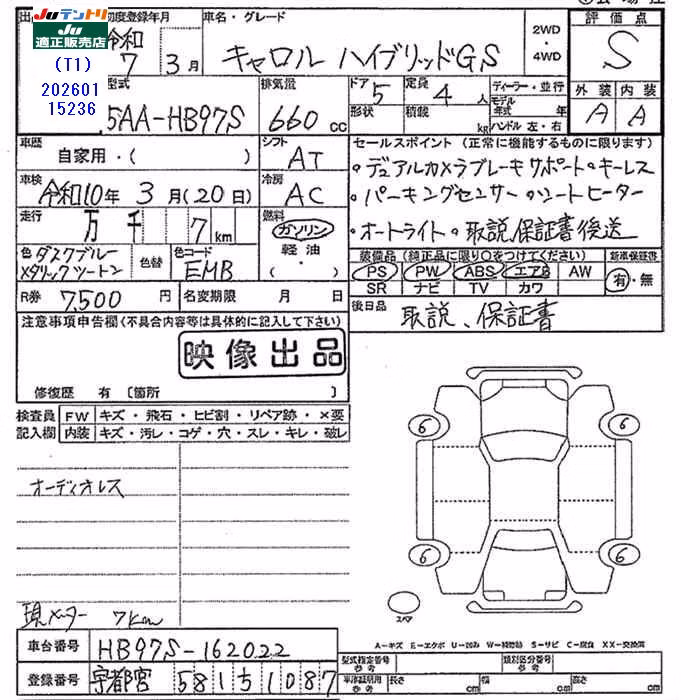 Juテントリ
Ju
適正販売店
(T1)
202601
15236
初度登録年月
令和
7 3月
車名・グレード
キャロル ハイブリッドGS
2WD
・
4WD
評価点
S
外装 内装
A A
型式
5AA-HB97S
排気量
660cc
ドア
5
形状
定員
4人
積載
kg
ディーラー・並行
モデル年式 年
ハンドル 左・右
車歴
自家用・( )
シフト
AT
車検
令和10年3月(20日)
冷房
AC
走行
万 千 7km
燃料
ガソリン
軽油
・
( )
色 ダスクブルー
メタリックツートン
色替
色コード
EMB
R券 7,500 円
名変期限 月 日
セールスポイント(正常に機能するものに限ります)
・デュアルカメラブレーキサポート・キーレス
・パーキングセンサー・シートヒーター
・オートライト・取説、保証書後送
装備品(純正品に限り○をつけてください)
PS PW ABS エアB AW
SR ナビ TV カワ
新車保証書
有・無
後日品
取説、保証書
注意事項申告欄(不具合内容等は具体的に記入して下さい)
映像出品
修復歴 有〔箇所 〕
検査員
記入欄
FW キズ・飛石・ヒビ割・リペア跡・×要
内装 キズ・汚レ・コゲ・穴・スレ・キレ・破レ
オーディオレス
現メーター 7km
6 6
6 6
スペア
車台番号 HB97S-162022
登録番号 宇都宮 581 う 1087
A-キズ E-エクボ U-凹み W-補修跡 S-サビ C-腐食 XX-交換済
型式指定番号
参考
類別区分番号
参考
車検証明用
参考
長さ cm 幅 cm 高さ cm